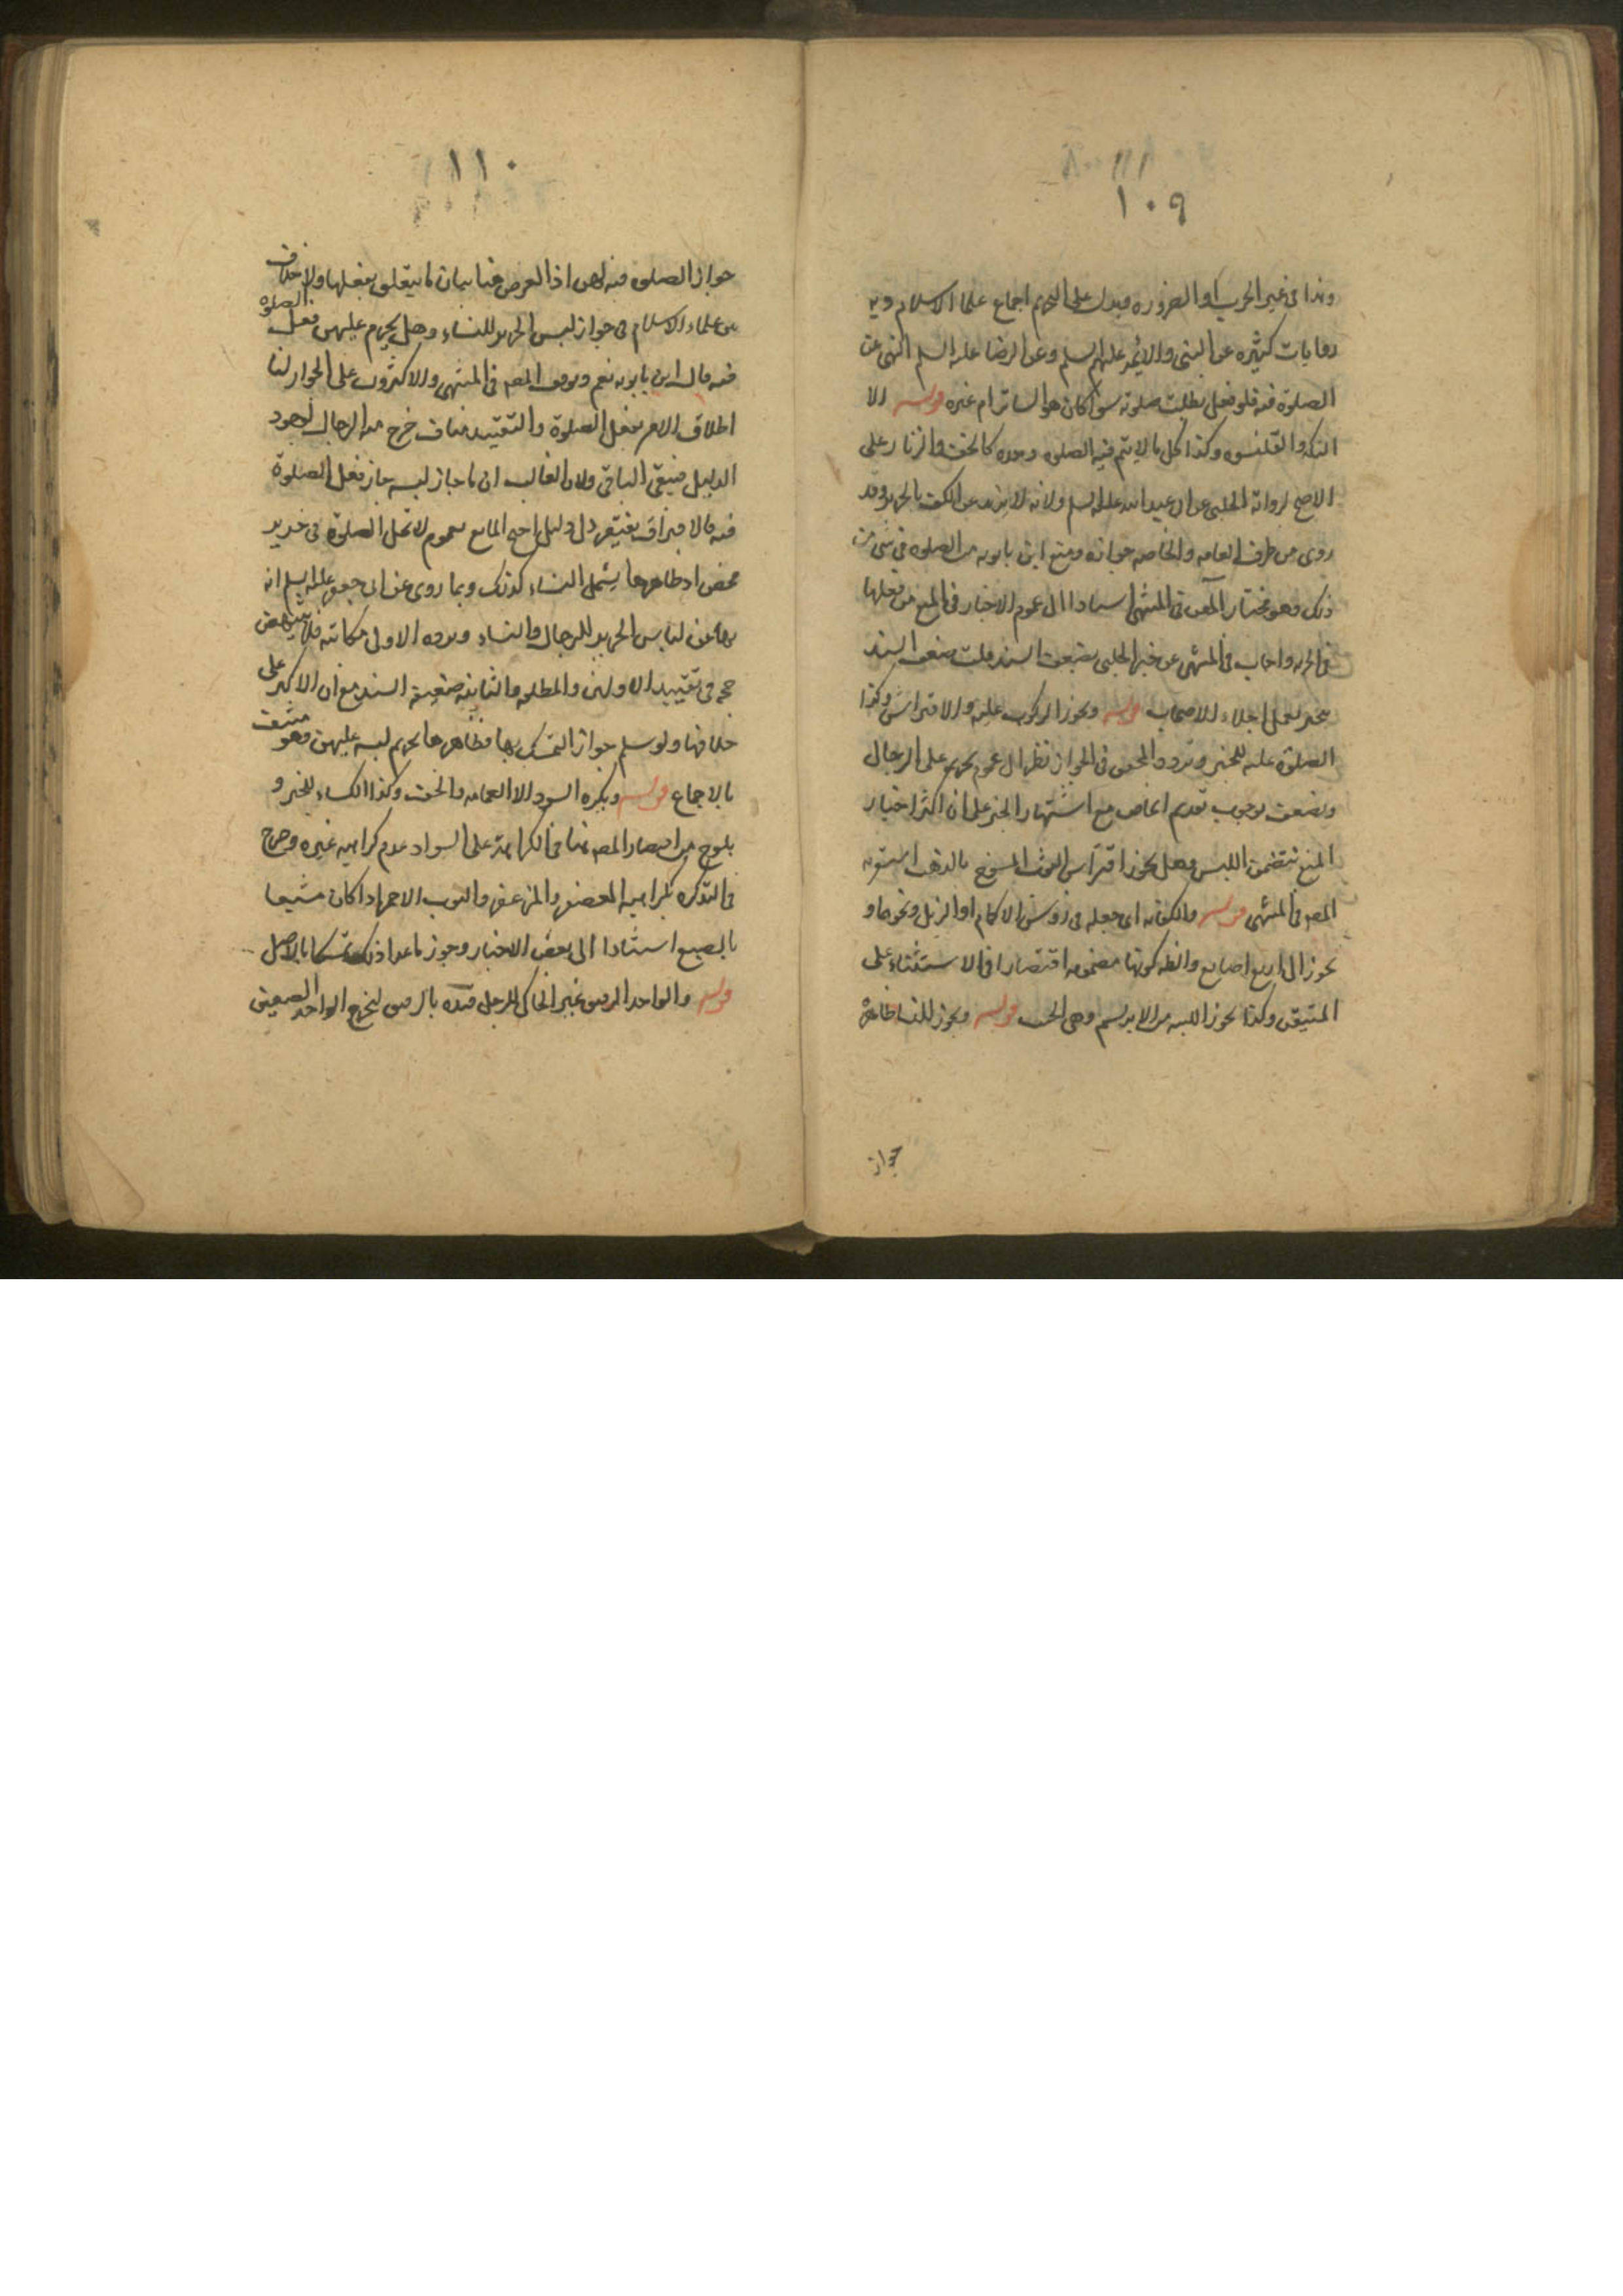 ١٠٩
وهذا في غير الحرب او الضرورة ويدل على التحريم اجماع علماء الاسلام وبه
روايات كثيرة عن النبي والائمة عليهم السلم وعن الرضا عليه السلم النهي عن
الصلوة فيه فلو فعل بطلت صلوته سواء كان هو الساتر ام غيره قوله الا
التكة والقلنسوة وكذا كل ما لا يتم فيه الصلوة وحده كالخف والزنار على
الاصح لرواية الحلبي عن ابي عبد الله عليه السلم ولانه لا يزيد عن الكف بالحرير وقد
روى من طرف العامة والخاصة جوازه ومنع ابن بابويه من الصلوة في شئ من
ذلك وهو مختار المص في المنتهى استنادا الى عموم الاخبار في المنع من فعلها
في الحرير واجاب في المنتهى عن خبر الحلبي بضعف السند قلت ضعف السند
ينجبر بعمل اجلاء الاصحاب قوله ويجوز الركوب عليه والافتراش وكذا
الصلوة عليه للخبر وتردد المحقق في الجواز نظرا الى عموم تحريمه على الرجال
ويضعف بوجوب تقديم الخاص مع اشتهار الخبر على ان اكثر اخبار
المنع تتضمن اللبس وهل يجوز افتراش الثوب المنسوج بالذهب استقربه
المص في المنتهى قوله والكف به اي جعله في رؤس الاكمام او الذيل ونحوها و
يجوز الى اربع اصابع والظ كونها مضمومة اقتصارا في الاستثناء على
المتيقن وكذا يجوز اللبنة من الابريسم وهي الجيب قوله ويجوز للنساء ظاهره
جواز
١١٠
جواز الصلوة فيه لهن اذ الغرض هنا بيان ما يتعلق بفعلها ولا خلاف
بين علماء الاسلام في جواز لبس الحرير للنساء وهل يحرم عليهن فعل الصلوة
فيه قال ابن بابويه نعم وتوقف المص في المنتهى والاكثرون على الجواز لنا
اطلاق الامر بفعل الصلوة والتقييد مناف خرج منه الرجال لوجود
الدليل فيبقى الباقي ولان الغالب ان ما جاز لبسه جاز فعل الصلوة
فيه فالافتراق يفتقر الى دليل احتج المانع بعموم لا تحل الصلوة في حرير
محض اذ ظاهرها يشمل النساء كذلك وبما روى عن ابي جعفر عليه السلم انه
نهى عن لباس الحرير للرجال والنساء ويرده الاولى مكاتبة فلا تنهض
حجة في تقييد الاولين والمطلقة والثانية ضعيفة السند مع ان الاكثر على
خلافها ولو سلم جواز التمسك بها فظاهرها تحريم لبسه عليهن وهو منتف
بالاجماع قوله ويكره السود الا العمامة والخف وكذا الكساء للخبر و
يلوح من اقتصار المص هنا في الكراهة على السواد عدم كراهية غيره وصرح
في التذكرة بكراهية المعصفر والمزعفر والثوب الاحمر اذا كان مشبعا
بالصبغ استنادا الى بعض الاخبار وجوز ما عدا ذلك تمسكا بالاصل
قوله والواحد الرقيق غير الحاكي للرجل قيده بالرقيق ليخرج الواحد الصفيق